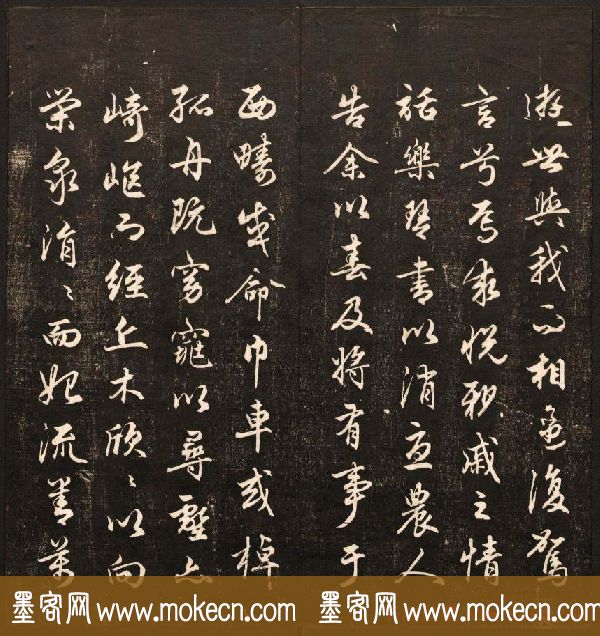 遊世與我而相遺復駕
言兮焉求悅親戚之情
話樂琴書以消憂農人
告余以春及將有事于
西疇或命巾車或棹
孤舟既窈窕以尋壑亦
崎嶇而經丘木欣〻以向
榮泉涓〻而始流善萬
墨客网 www.mokecn.com 墨客网 www.mokecn.com